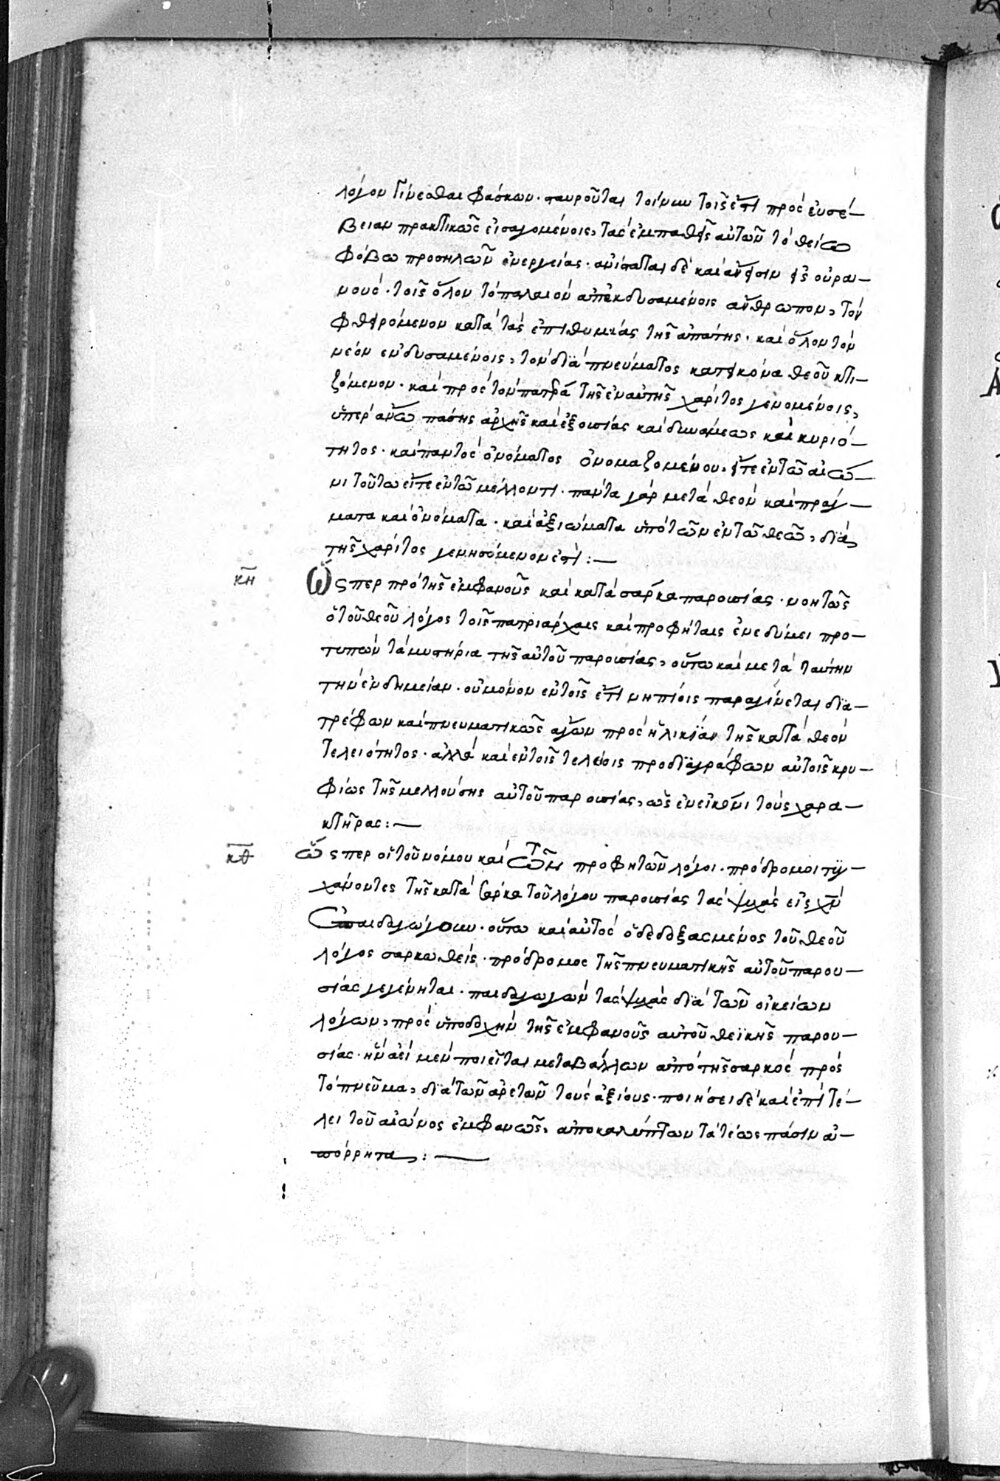 λόγον γίνεσθαι φάσκων· σταυροῦται τοίνυν τοῖς ἔτι πρὸς εὐσέ-
βειαν πρακτικῶς εἰσαγομένοις, τὰς ἐμπαθεῖς αὐτῶν τῶ θείω
φόβω προσηλῶν ἐνεργείας· ἀνίσταται δὲ καὶ ἄνεισιν εἰς οὐρα-
νούς· τοῖς ὅλον τὸ παλαιὸν ἀπεκδυσαμένοις ἄνθρωπον, τὸν
φθειρόμενον κατὰ τὰς ἐπιθυμίας τῆς ἀπάτης· καὶ ὅλον τὸν
νέον ἐνδυσαμένοις, τὸν διὰ πνεύματος κατ' εἰκόνα θεοῦ κτι-
ζόμενον· καὶ πρὸς τὸν πατέρα τῆς ἐν αὐτοῖς χάριτος γενομένοις,
ὑπεράνω πάσης ἀρχῆς καὶ ἐξουσίας καὶ δυνάμεως καὶ κυριό-
τητος· καὶ παντὸς ὀνόματος ὀνομαζομένου, εἴτε ἐν τῶ αἰῶ-
νι τούτω εἴτε ἐν τῶ μέλλοντι· πάντα γὰρ μετὰ θεὸν καὶ πράγ-
ματα καὶ ὀνόματα· καὶ ἀξιώματα ὑπὸ τῶν ἐν τῶ θεῶ, διὰ
τῆς χάριτος γενησόμενον ἐστί:—
κη Ὥσπερ πρὸ τῆς ἐμφανοῦς καὶ κατὰ σάρκα παρουσίας· νοητῶς
ὁ τοῦ θεοῦ λόγος τοῖς πατριάρχαις καὶ προφήταις ἐνεδήμει προ-
τυπῶν τὰ μυστήρια τῆς αὐτοῦ παρουσίας, οὕτω καὶ μετὰ ταύτην
τὴν ἐνδημίαν· οὐ μόνον ἐν τοῖς ἔτι νηπίοις παραγίνεται δια-
τρέφων καὶ πνευματικῶς ἄγων πρὸς ἡλικίαν τῆς κατὰ θεὸν
τελειότητος· ἀλλὰ καὶ ἐν τοῖς τελείοις προδιαγράφων αὐτοῖς κρυ-
φίως τῆς μελλούσης αὐτοῦ παρουσίας, ὡς ἐν εἰκόνι τοὺς χαρα-
κτῆρας:—
κθ Ὥσπερ οἱ τοῦ νόμου καὶ τῶν προφητῶν λόγοι· πρόδρομοι τυγ-
χάνοντες τῆς κατὰ σάρκα τοῦ λόγου παρουσίας τὰς ψυχὰς εἰς χν
ἐπαιδαγώγουν· οὕτω καὶ αὐτὸς ὁ δεδοξασμένος τοῦ θεοῦ
λόγος σαρκωθείς· πρόδρομος τῆς πνευματικῆς αὐτοῦ παρου-
σίας γεγένηται· παιδαγωγῶν τὰς ψυχὰς διὰ τῶν οἰκείων
λόγων, πρὸς ὑποδοχὴν τῆς ἐμφανοῦς αὐτοῦ θεϊκῆς παρου-
σίας· ἣν ἀεὶ μὲν ποιεῖται μεταβάλλων ἀπὸ τῆς σαρκὸς πρὸς
τὸ πνεῦμα, διὰ τῶν ἀρετῶν τοὺς ἀξίους· ποιήσει δὲ καὶ ἐπὶ τέ-
λει τοῦ αἰῶνος ἐμφανῶς, ἀποκαλύπτων τὰ τέως πᾶσιν ἀ-
πόρρητα:—